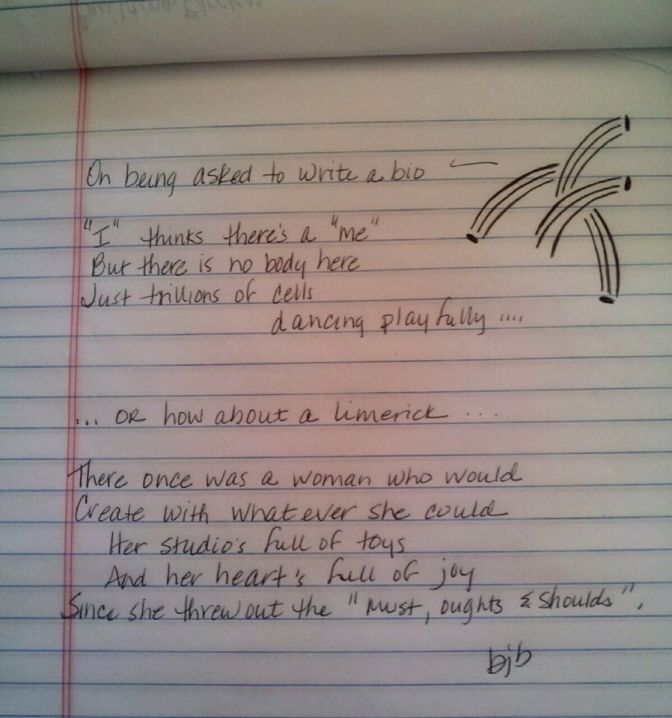 On being asked to write a bio —
"I" thinks there's a "me"
But there is no body here
Just trillions of cells
dancing playfully ....
... OR how about a limerick ...
There once was a woman who would
Create with whatever she could
Her studio's full of toys
And her heart's full of joy
Since she threw out the "must, oughts & shoulds".
bjb